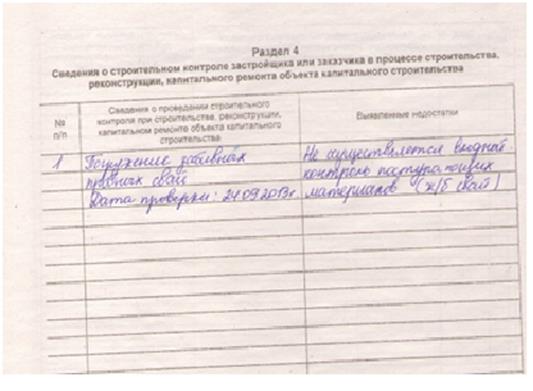 Раздел 4
Сведения о строительном контроле застройщика или заказчика в процессе строительства,
реконструкции, капитального ремонта объекта капитального строительства
№
п/п
Сведения о проведении строительного
контроля при строительстве, реконструкции,
капитальном ремонте объекта капитального
строительства
Выявленные недостатки
1
Погружение забивных
пробных свай
Дата проверки: 24.09.2013г.
Не осуществляется входной
контроль поступающих
материалов (ж/б свай)